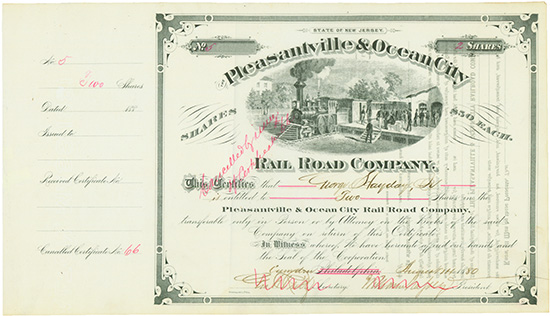 No. 5
Two Shares
Dated 188
Issued to
Received Certificate No.
Cancelled Certificate No. 66
STATE OF NEW JERSEY.
No 5
2 SHARES
Pleasantville & Ocean City
SHARES $50 EACH.
RAIL ROAD COMPANY.
Cancelled by
This Certifies that
is entitled to Two Shares in the
Pleasantville & Ocean City Rail Road Company,
transferable only in Person or by Attorney on the Books of the said
Company on return of this Certificate.
In Witness whereof, We have hereunto affixed our hands and
the Seal of the Corporation
Camden Philadelphia August 1880
Secretary President